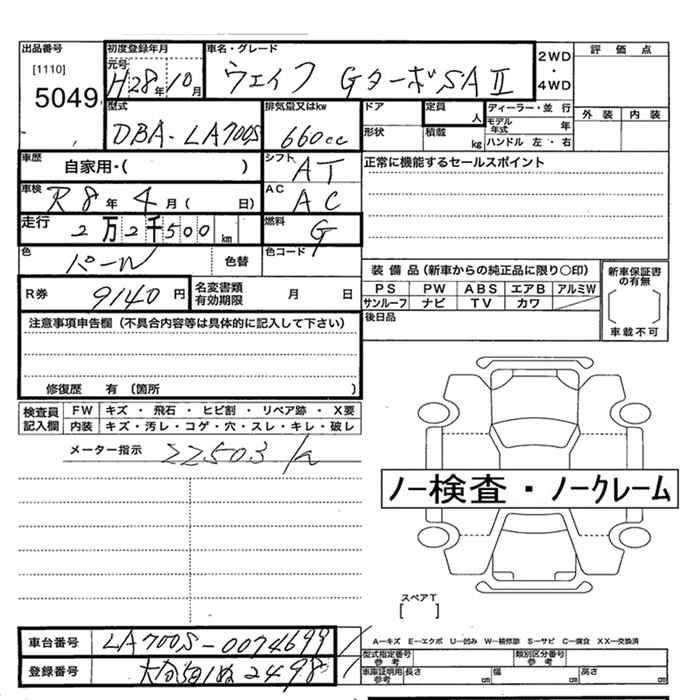 出品番号 初度登録年月 車名・グレード 2WD・4WD 評価点
[1110] 元号 H28年10月 ウェイク GターボSAⅡ
5049
型式 排気量又はkw ドア 定員 人 ディーラー・並行 外装 内装
DBA-LA700S 660cc 形状 積載 kg モデル年式 年
ハンドル 左・右
車歴 自家用・( ) シフト AT 正常に機能するセールスポイント
車検 R8年4月( 日) AC AC
走行 2万2千500km 燃料 G
色 パール 色替 色コード
装備品(新車からの純正品に限り○印) 新車保証書の有無
R券 9140円 名変書類有効期限 月 日 PS PW ABS エアB アルミW
サンルーフ ナビ TV カワ
注意事項申告欄(不具合内容等は具体的に記入して下さい) 後日品 車載不可
修復歴 有(箇所 )
検査員記入欄 FW キズ・飛石・ヒビ割・リペア跡・X要
内装 キズ・汚レ・コゲ・穴・スレ・キレ・破レ
メーター指示 22503
ノー検査・ノークレーム
スペアT
[ ]
車台番号 LA700S-0074699 A―キズ E―エクボ U―凹み W―補修跡 S―サビ C―腐食 XX―交換済
型式指定番号 参考 類別区分番号 参考
登録番号 2498 車庫証明用参考 長さ cm 幅 cm 高さ cm